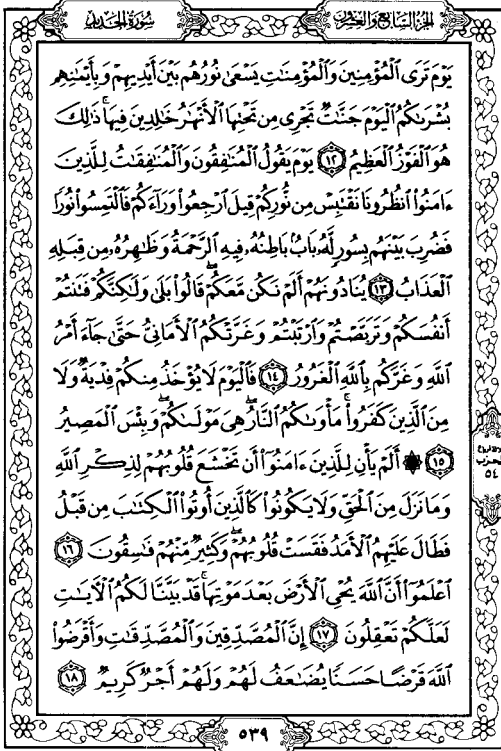 الجزء السابع والعشرون
سورة الحديد
يَوْمَ تَرَى الْمُؤْمِنِينَ وَالْمُؤْمِنَٰتِ يَسْعَىٰ نُورُهُم بَيْنَ أَيْدِيهِمْ وَبِأَيْمَٰنِهِم
بُشْرَىٰكُمُ الْيَوْمَ جَنَّٰتٌ تَجْرِى مِن تَحْتِهَا الْأَنْهَٰرُ خَٰلِدِينَ فِيهَا ۚ ذَٰلِكَ
هُوَ الْفَوْزُ الْعَظِيمُ ١٢ يَوْمَ يَقُولُ الْمُنَٰفِقُونَ وَالْمُنَٰفِقَٰتُ لِلَّذِينَ
ءَامَنُوا انظُرُونَا نَقْتَبِسْ مِن نُّورِكُمْ قِيلَ ارْجِعُوا وَرَآءَكُمْ فَالْتَمِسُوا نُورًا
فَضُرِبَ بَيْنَهُم بِسُورٍ لَّهُۥ بَابٌۢ بَاطِنُهُۥ فِيهِ الرَّحْمَةُ وَظَٰهِرُهُۥ مِن قِبَلِهِ
الْعَذَابُ ١٣ يُنَادُونَهُمْ أَلَمْ نَكُن مَّعَكُمْ ۖ قَالُوا بَلَىٰ وَلَٰكِنَّكُمْ فَتَنتُمْ
أَنفُسَكُمْ وَتَرَبَّصْتُمْ وَارْتَبْتُمْ وَغَرَّتْكُمُ الْأَمَانِىُّ حَتَّىٰ جَآءَ أَمْرُ
اللَّهِ وَغَرَّكُم بِاللَّهِ الْغَرُورُ ١٤ فَالْيَوْمَ لَا يُؤْخَذُ مِنكُمْ فِدْيَةٌ وَلَا
مِنَ الَّذِينَ كَفَرُوا ۚ مَأْوَىٰكُمُ النَّارُ ۖ هِىَ مَوْلَىٰكُمْ ۖ وَبِئْسَ الْمَصِيرُ
١٥ ۞ أَلَمْ يَأْنِ لِلَّذِينَ ءَامَنُوٓا أَن تَخْشَعَ قُلُوبُهُمْ لِذِكْرِ اللَّهِ
وَمَا نَزَلَ مِنَ الْحَقِّ وَلَا يَكُونُوا كَالَّذِينَ أُوتُوا الْكِتَٰبَ مِن قَبْلُ
فَطَالَ عَلَيْهِمُ الْأَمَدُ فَقَسَتْ قُلُوبُهُمْ ۖ وَكَثِيرٌ مِّنْهُمْ فَٰسِقُونَ ١٦
اعْلَمُوٓا أَنَّ اللَّهَ يُحْىِ الْأَرْضَ بَعْدَ مَوْتِهَا ۚ قَدْ بَيَّنَّا لَكُمُ الْآيَٰتِ
لَعَلَّكُمْ تَعْقِلُونَ ١٧ إِنَّ الْمُصَّدِّقِينَ وَالْمُصَّدِّقَٰتِ وَأَقْرَضُوا
اللَّهَ قَرْضًا حَسَنًا يُضَٰعَفُ لَهُمْ وَلَهُمْ أَجْرٌ كَرِيمٌ ١٨
٥٤
٥٣٩